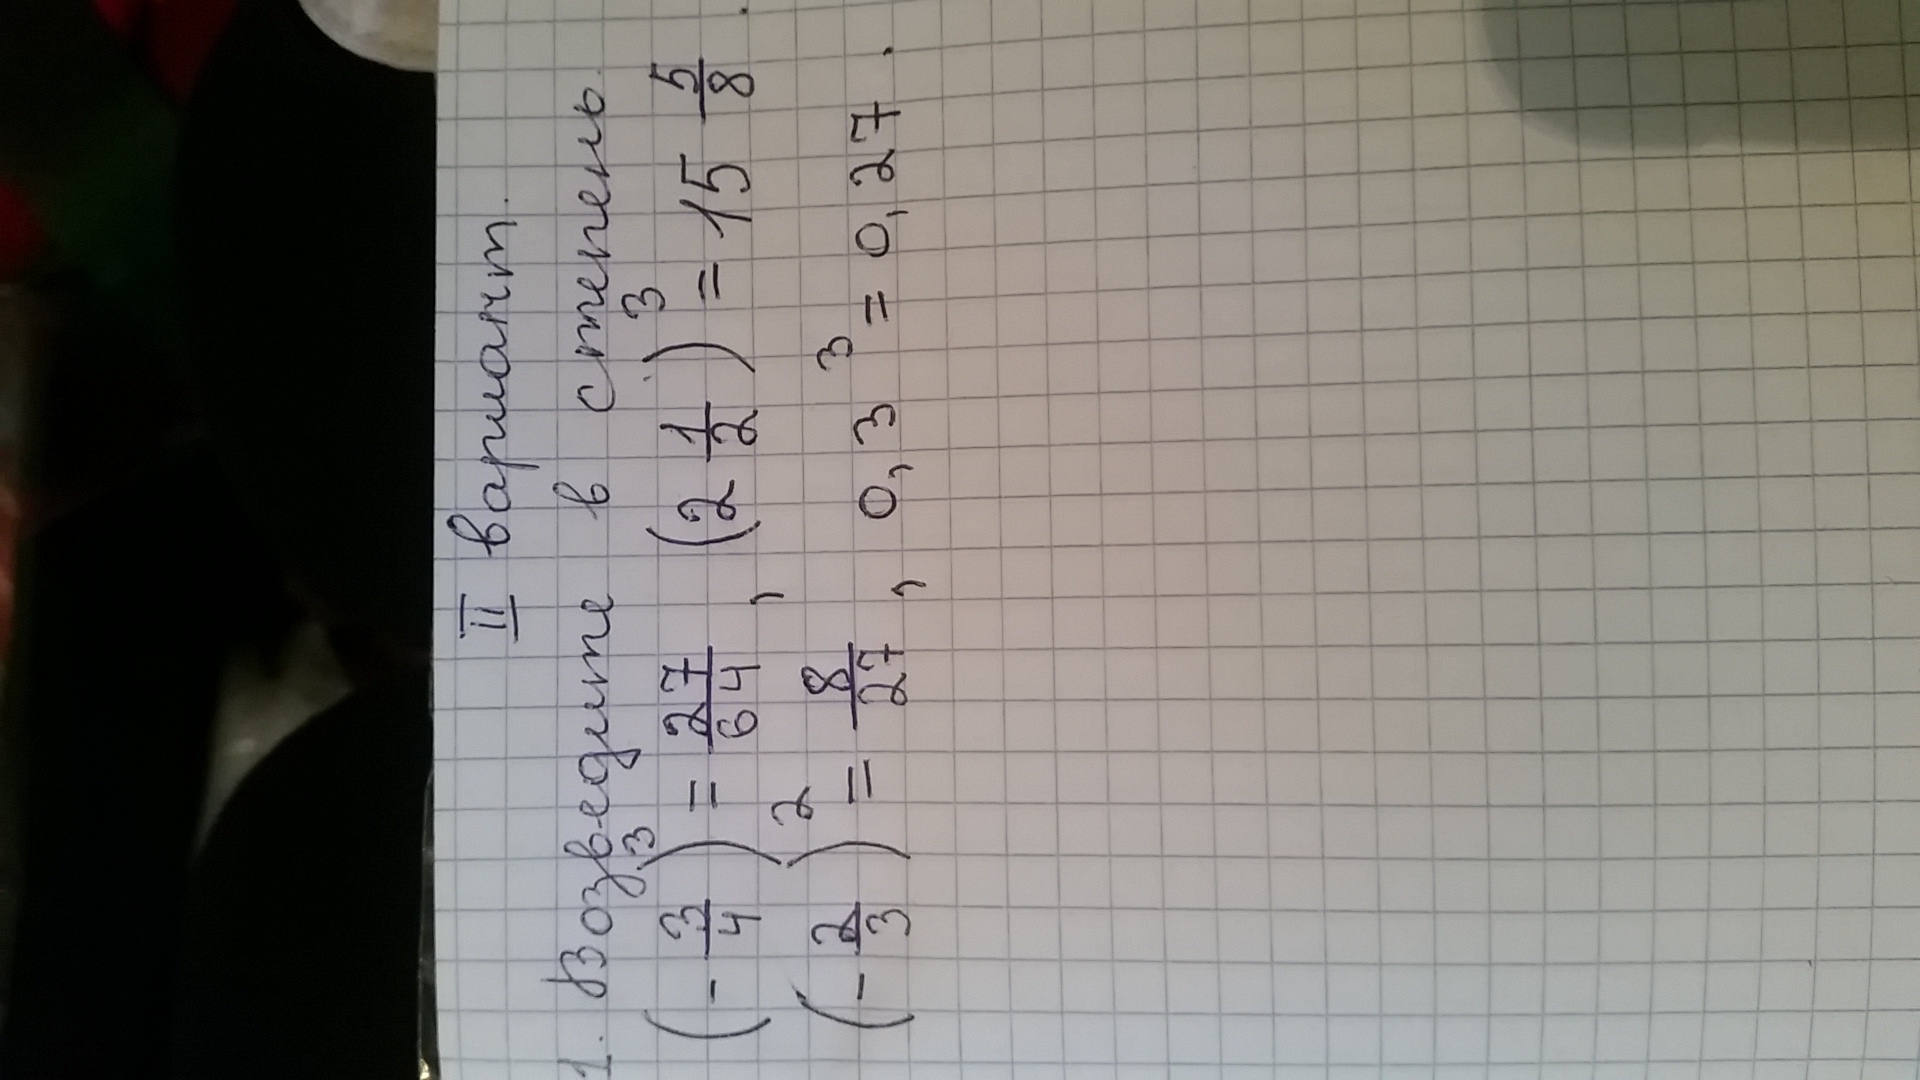 II вариант.
1. Возведите в степень.
(-3/4)³ = 27/64, (2 1/2)³ = 15 5/8.
(-2/3)² = 8/27, 0,3³ = 0,27.